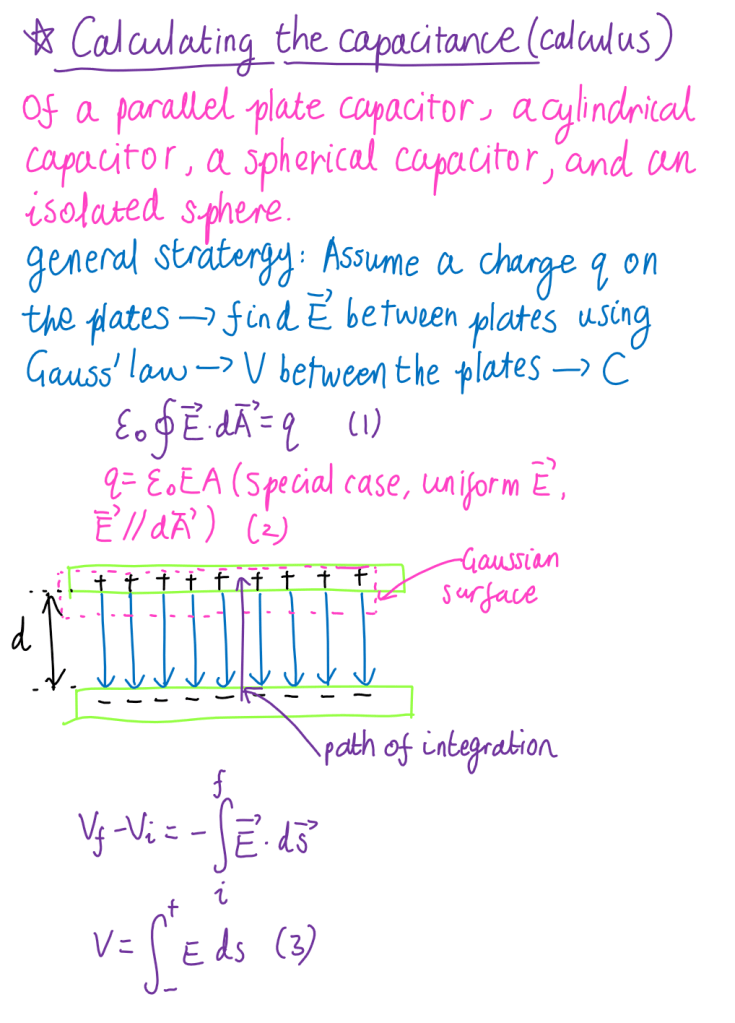 ☆ Calculating the capacitance (calculus)
Of a parallel plate capacitor, a cylindrical
capacitor, a spherical capacitor, and an
isolated sphere.
general stratergy: Assume a charge q on
the plates → find E⃗ between plates using
Gauss' law → V between the plates → C
ε₀∮E⃗·dA⃗ = q (1)
q = ε₀EA (Special case, uniform E⃗,
E⃗ // dA⃗) (2)
Gaussian
surface
+ + + + + + + + +
d
− − − − − − − − −
path of integration
f
V_f - V_i = -∫E⃗·ds⃗
i
V = ∫₋⁺ E ds (3)